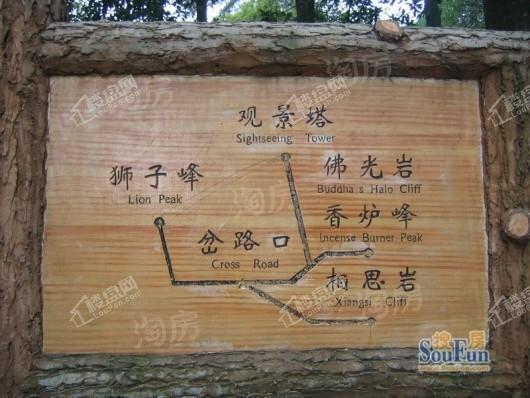 观景塔
Sightseeing Tower
狮子峰
Lion Peak
佛光岩
Buddha s Halo Cliff
香炉峰
Incense Burner Peak
岔路口
Cross Road
相思岩
Xiangsi Cliff
搜房
SouFun